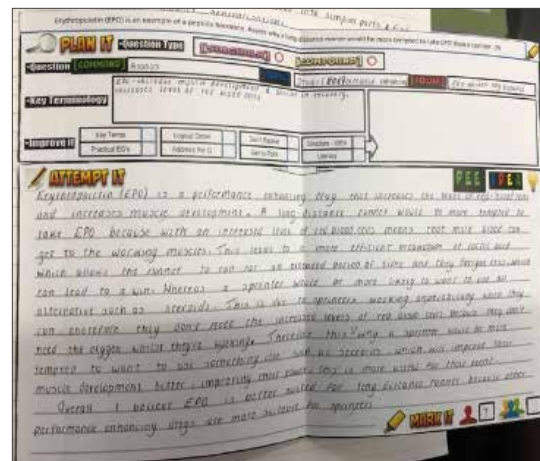 into simpler parts &
Erythropoietin (EPO) is an example of a peptide hormone. Assess why a long distance runner would be more tempted to take EPO than a sprinter.
PLAN IT -Question Type
-Question [COMMAND] Assess
-Key Terminology
EPO - increase muscle development & aids in recovery.
increases levels of red blood cells
-Improve It
Key Terms
Logical Order
Don't Repeat
Structure -
Practical EG's
Address the Q
Get to Point
Literacy
ATTEMPT IT
PEE
Erythropoietin (EPO) is a performance enhancing drug that increases the levels of red blood cells
and increases muscle development. A long distance runner would be more tempted to
take EPO because with an increased level of red blood cells means that more blood can
get to the working muscles. This leads to a more efficient of lactic acid
which allows the runner to run for an extended period of time and they fatigue less which
can lead to a win. Whereas a sprinter would be more likely to want to use an
alternative such as steroids. This is due to sprinters working anaerobically when they
run therefore they don't need the increased levels of red blood cells because they don't
need the oxygen whilst they're working. Therefore this a sprinter would be more
tempted to want to use something else such as steroids which will improve their
muscle development better, improving their power. This is more useful for their event.
Overall I believe EPO is better suited for long distance runners because other
performance enhancing drugs are more suitable for sprinters
MARK IT
7